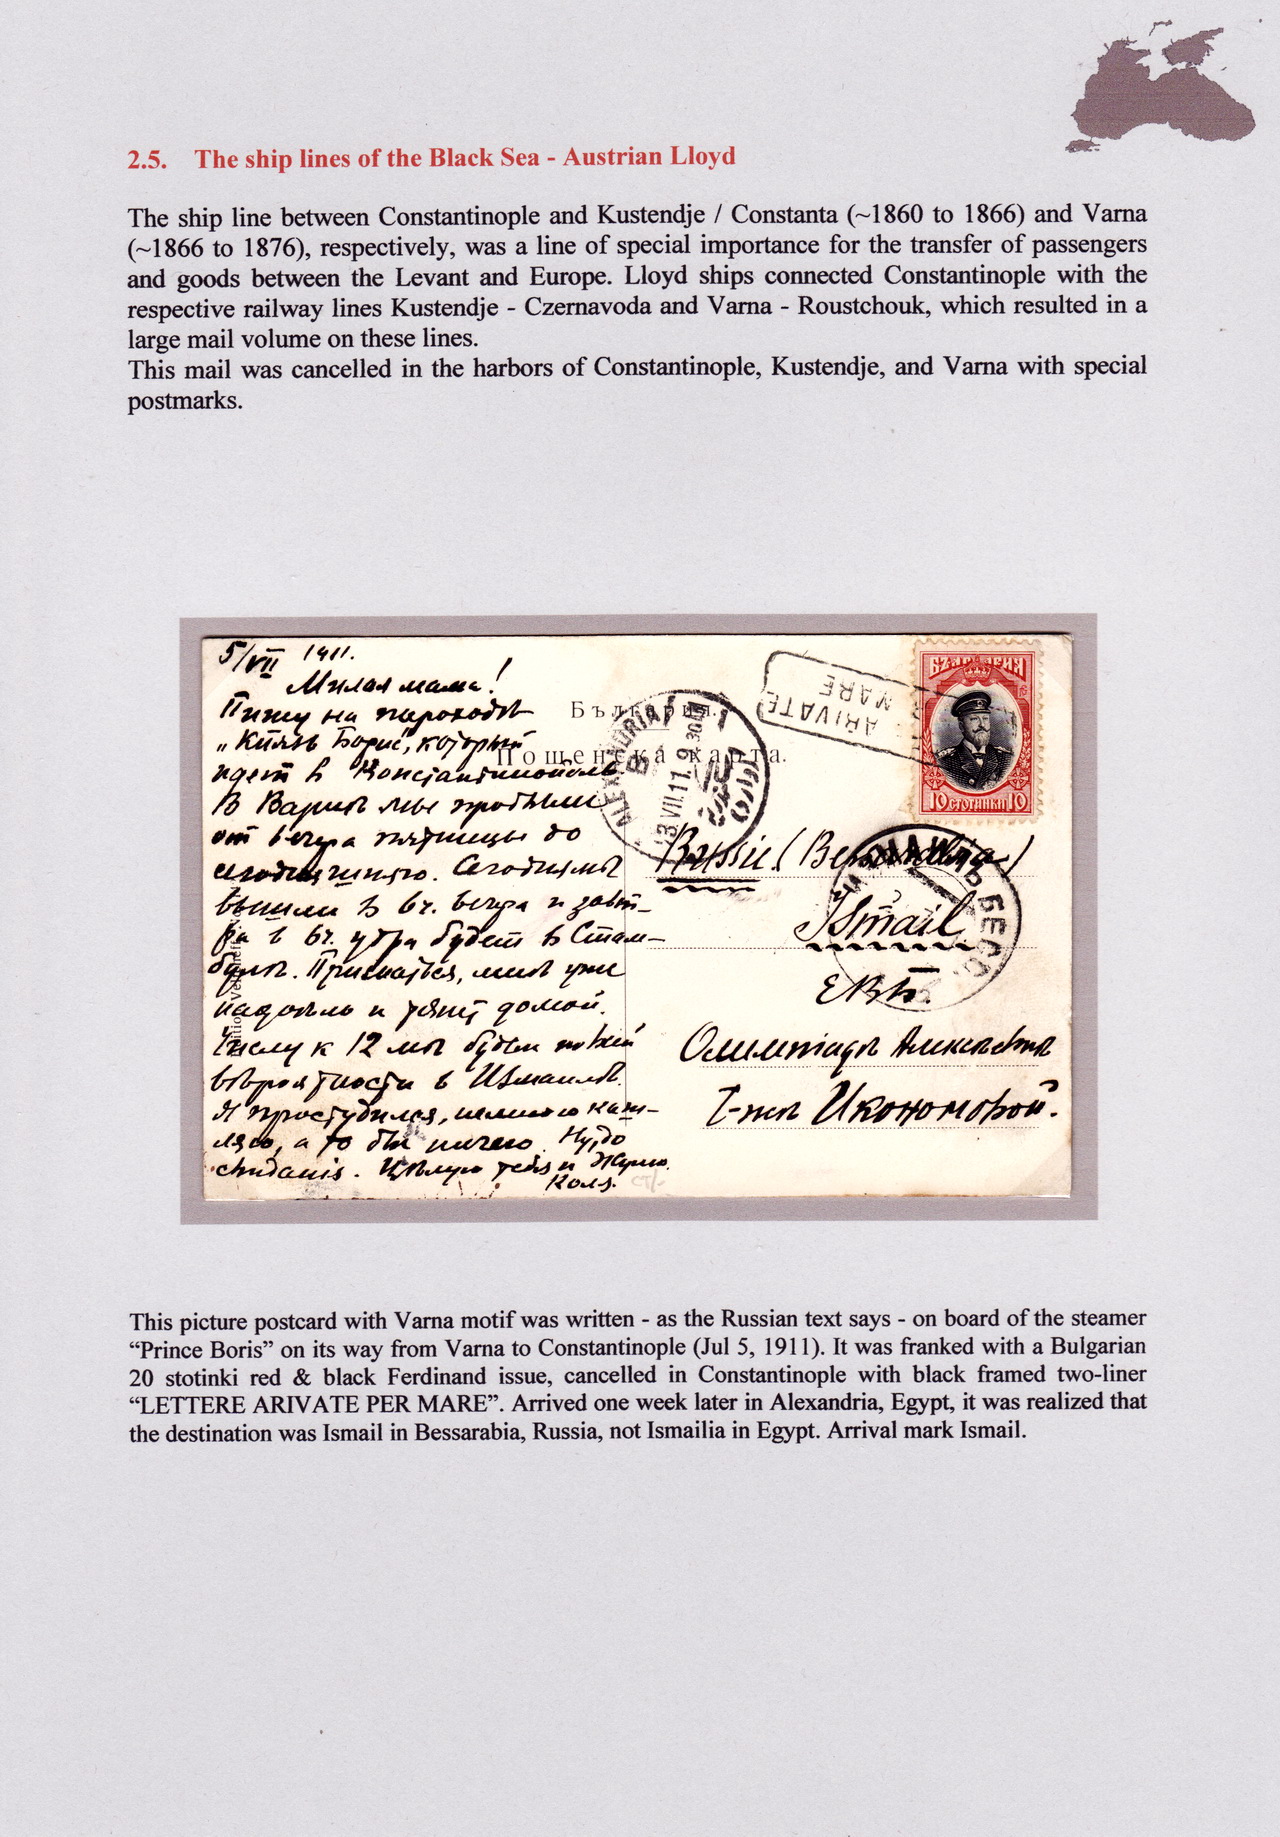 2.5. The ship lines of the Black Sea - Austrian Lloyd
The ship line between Constantinople and Kustendje / Constanta (~1860 to 1866) and Varna
(~1866 to 1876), respectively, was a line of special importance for the transfer of passengers
and goods between the Levant and Europe. Lloyd ships connected Constantinople with the
respective railway lines Kustendje - Czernavoda and Varna - Roustchouk, which resulted in a
large mail volume on these lines.
This mail was cancelled in the harbors of Constantinople, Kustendje, and Varna with special
postmarks.
5/VII 1911.
Милая мама!
Пишу на пароходѣ
„Князь Борис", который
идет в Константинополь.
В Варнѣ мы пробыли
от вечера пятницы до
Сегодня мы
вышли в 6 ч. вечера и завт-
ра в 6 ч. утра будем в Стам-
булѣ. Признаться, мнѣ уже
надоѣло и тянет домой.
Числу к 12 мы будем по всей
вѣроятности в Измаилѣ.
Я простудился, немного каш-
ляю, а то бы ничего. Ну, до
свиданія. Цѣлую тебя и
Коля.
България.
Пощенска карта.
ALEXANDRIA
B
3 VII.11. 9 30
ARIVATE
MARE
БЪЛГАРИЯ
10 СТОТИНКИ 10
Russie (Bessarabia)
Ismail
ИЗМАИЛЪ БЕССА
ЕВБ.
Олимпіадѣ Алексѣевнѣ
Г-жѣ Икономовой.
This picture postcard with Varna motif was written - as the Russian text says - on board of the steamer
“Prince Boris” on its way from Varna to Constantinople (Jul 5, 1911). It was franked with a Bulgarian
20 stotinki red & black Ferdinand issue, cancelled in Constantinople with black framed two-liner
“LETTERE ARIVATE PER MARE”. Arrived one week later in Alexandria, Egypt, it was realized that
the destination was Ismail in Bessarabia, Russia, not Ismailia in Egypt. Arrival mark Ismail.